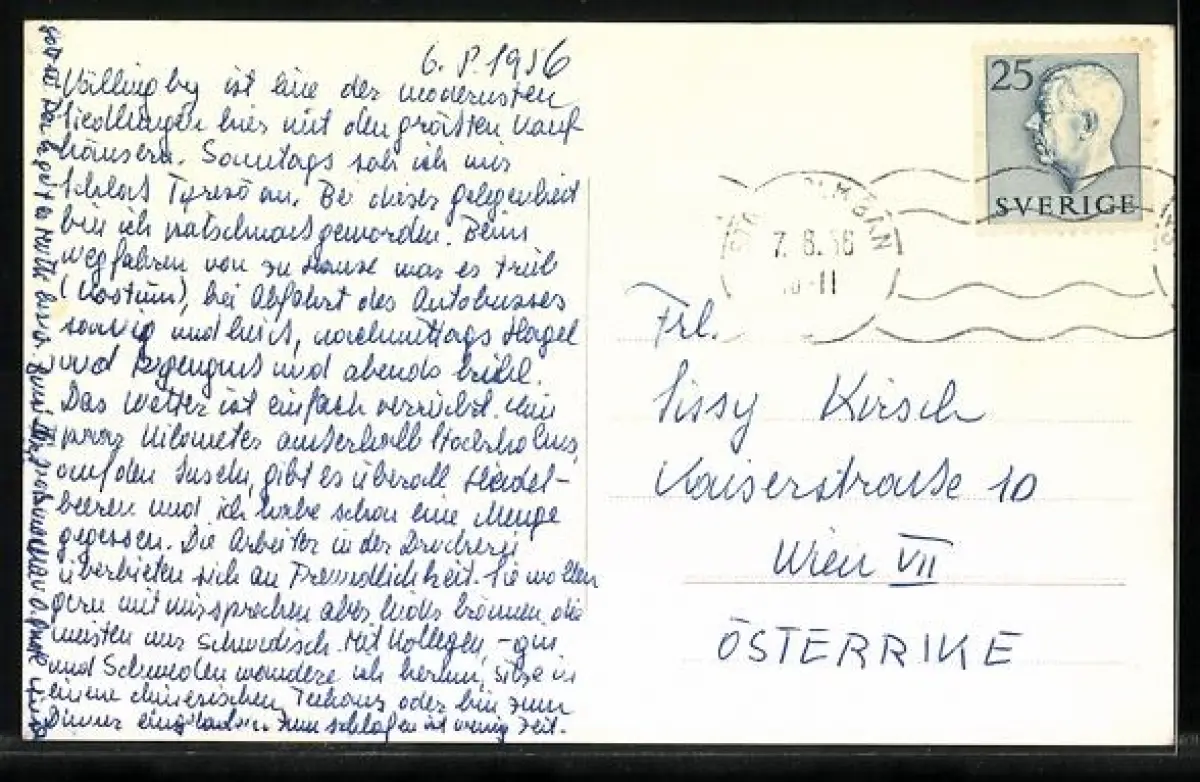 6. 8. 1956
Vällingby ist eine der modernsten
Siedlungen hier mit den größten Kauf-
häusern. Sonntags sah ich mir
Schloß Tyresö an. Bei dieser gelegenheit
bin ich patschnaß geworden. Beim
wegfahren von zu Hause war es trüb
(Kostüm), bei Abfahrt des Autobusses
sonnig und heiß, nachmittags Hagel
und Regenguß und abends kühl.
Das Wetter ist einfach verrückt. Ein
paar Kilometer außerhalb Stockholms,
auf den Inseln, gibt es überall Heidel-
beeren und ich habe schon eine Menge
gegessen. Die Arbeiter in der Druckerei
überbieten sich an Freundlichkeit. Sie wollen
gern mit mir sprechen aber leider können die
meisten nur Schwedisch. Mit Kollegen, -inn
und Schweden wandere ich herum, sitze in
einem chinesischen Teehaus oder bin zum
Dinner eingeladen. Zum schlafen ist wenig Zeit.
25
SVERIGE
7. 8. 56
Frl.
Sissy Kirsch
Kaiserstraße 10
Wien VII
ÖSTERRIKE